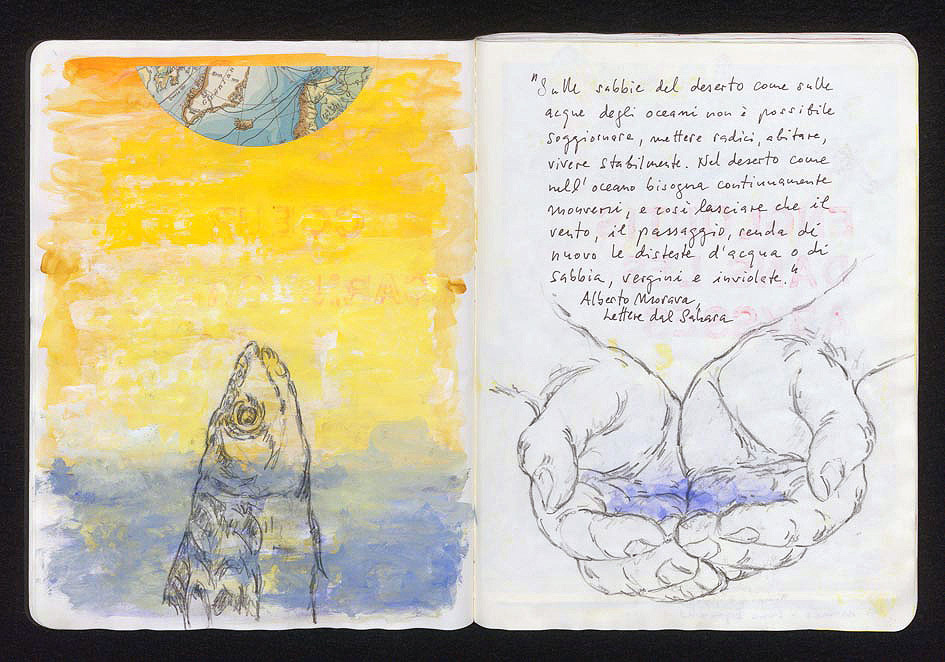 "Sulle sabbie del deserto come sulle
acque degli oceani non è possibile
soggiornare, mettere radici, abitare,
vivere stabilmente. Nel deserto come
nell'oceano bisogna continuamente
muoversi, e così lasciare che il
vento, il passaggio, renda di
nuovo le distese d'acqua o di
sabbia, vergini e inviolate."
Alberto Moravia,
Lettere dal Sahara